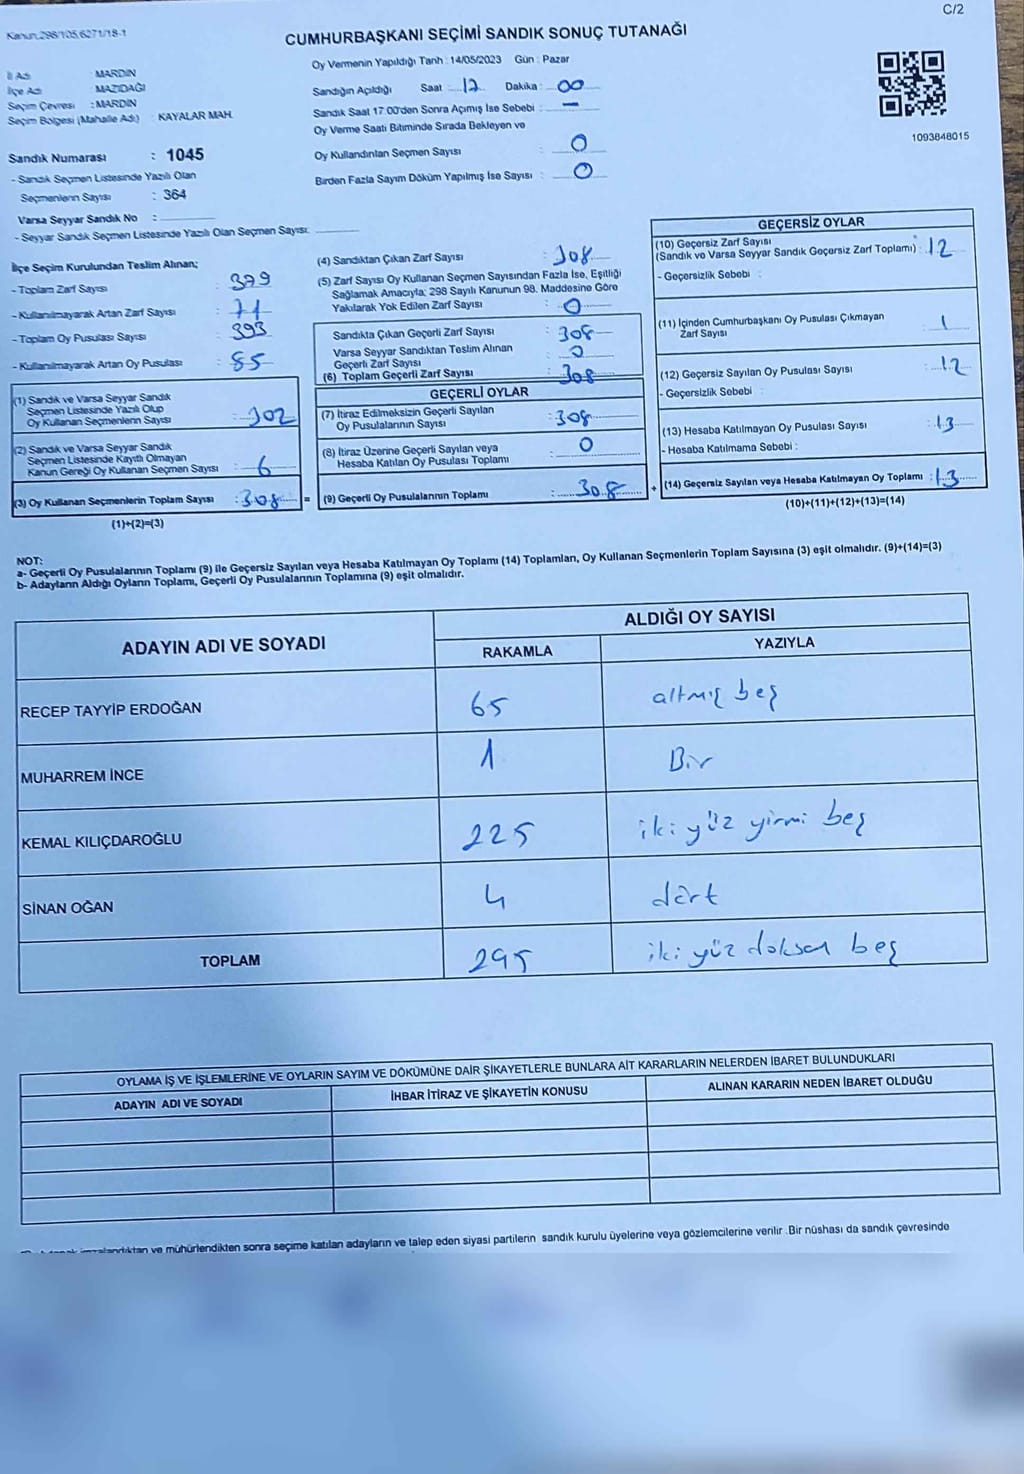 C/2
Kanun,298/105,6271/18-1
CUMHURBAŞKANI SEÇİMİ SANDIK SONUÇ TUTANAĞI
İl Adı : MARDİN
İlçe Adı : MAZIDAĞI
Seçim Çevresi : MARDİN
Seçim Bölgesi (Mahalle Adı) : KAYALAR MAH.
Sandık Numarası : 1045
- Sandık Seçmen Listesinde Yazılı Olan
Seçmenlerin Sayısı : 364
Varsa Seyyar Sandık No :
- Seyyar Sandık Seçmen Listesinde Yazılı Olan Seçmen Sayısı:
Oy Vermenin Yapıldığı Tarih : 14/05/2023 Gün : Pazar
Sandığın Açıldığı Saat 17 Dakika : 00
Sandık Saat 17:00'den Sonra Açımış İse Sebebi : —
Oy Verme Saati Bitiminde Sırada Bekleyen ve
Oy Kullandırılan Seçmen Sayısı : 0
Birden Fazla Sayım Döküm Yapılmış İse Sayısı : 0
1093848015
İlçe Seçim Kurulundan Teslim Alınan;
- Toplam Zarf Sayısı : 379
- Kullanılmayarak Artan Zarf Sayısı : 71
- Toplam Oy Pusulası Sayısı : 393
- Kullanılmayarak Artan Oy Pusulası : 85
(1) Sandık ve Varsa Seyyar Sandık
Seçmen Listesinde Yazılı Olup
Oy Kullanan Seçmenlerin Sayısı : 302
(2) Sandık ve Varsa Seyyar Sandık
Seçmen Listesinde Kayıtlı Olmayan
Kanun Gereği Oy Kullanan Seçmen Sayısı : 6
(3) Oy Kullanan Seçmenlerin Toplam Sayısı : 308 =
(1)+(2)=(3)
(4) Sandıktan Çıkan Zarf Sayısı : 308
(5) Zarf Sayısı Oy Kullanan Seçmen Sayısından Fazla İse, Eşitliği
Sağlamak Amacıyla; 298 Sayılı Kanunun 98. Maddesine Göre
Yakılarak Yok Edilen Zarf Sayısı : 0
Sandıkta Çıkan Geçerli Zarf Sayısı : 308
Varsa Seyyar Sandıktan Teslim Alınan
Geçerli Zarf Sayısı : 0
(6) Toplam Geçerli Zarf Sayısı : 308
GEÇERLİ OYLAR
(7) İtiraz Edilmeksizin Geçerli Sayılan
Oy Pusulalarının Sayısı : 308
(8) İtiraz Üzerine Geçerli Sayılan veya
Hesaba Katılan Oy Pusulası Toplamı : 0
(9) Geçerli Oy Pusulalarının Toplamı : 308 +
GEÇERSİZ OYLAR
(10) Geçersiz Zarf Sayısı
(Sandık ve Varsa Seyyar Sandık Geçersiz Zarf Toplamı) : 12
- Geçersizlik Sebebi :
(11) İçinden Cumhurbaşkanı Oy Pusulası Çıkmayan
Zarf Sayısı : 1
(12) Geçersiz Sayılan Oy Pusulası Sayısı : 12
- Geçersizlik Sebebi :
(13) Hesaba Katılmayan Oy Pusulası Sayısı : 13
- Hesaba Katılmama Sebebi :
(14) Geçersiz Sayılan veya Hesaba Katılmayan Oy Toplamı : 13
(10)+(11)+(12)+(13)=(14)
NOT:
a- Geçerli Oy Pusulalarının Toplamı (9) ile Geçersiz Sayılan veya Hesaba Katılmayan Oy Toplamı (14) Toplamları, Oy Kullanan Seçmenlerin Toplam Sayısına (3) eşit olmalıdır. (9)+(14)=(3)
b- Adayların Aldığı Oyların Toplamı, Geçerli Oy Pusulalarının Toplamına (9) eşit olmalıdır.
ADAYIN ADI VE SOYADI ALDIĞI OY SAYISI
RAKAMLA YAZIYLA
RECEP TAYYİP ERDOĞAN 65 altmış beş
MUHARREM İNCE 1 Bir
KEMAL KILIÇDAROĞLU 225 iki yüz yirmi beş
SİNAN OĞAN 4 dört
TOPLAM 295 iki yüz doksan beş
OYLAMA İŞ VE İŞLEMLERİNE VE OYLARIN SAYIM VE DÖKÜMÜNE DAİR ŞİKAYETLERLE BUNLARA AİT KARARLARIN NELERDEN İBARET BULUNDUKLARI
ADAYIN ADI VE SOYADI İHBAR İTİRAZ VE ŞİKAYETİN KONUSU ALINAN KARARIN NEDEN İBARET OLDUĞU
imzalandıktan ve mühürlendikten sonra seçime katılan adayların ve talep eden siyasi partilerin sandık kurulu üyelerine veya gözlemcilerine verilir .Bir nüshası da sandık çevresinde